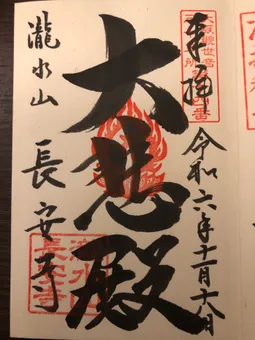 奉拝
令和六年十一月十八日
大悲殿
瀧水山
長安寺
瀧水山
長安寺